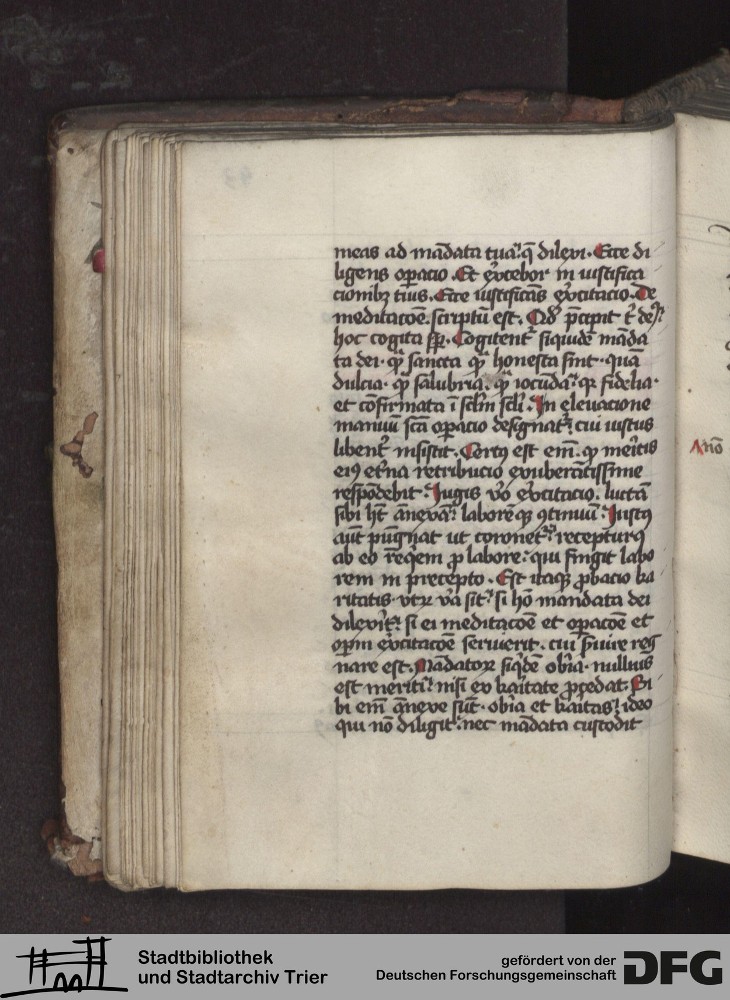 meas ad mādata tua. q̄ dilexi. Ecce di
ligens opacio. Et excebor in iustifica
cionibꝫ tuis. Ecce iustificās excitacio. De
meditacōe scriptū est. Qd p̄cepit t̄ deꝰ
hoc cogita sp̄. Cogitent siquidē māda
ta dei. qᷓ sancta qᷓ honesta sint. quā
dulcia. qᷓ salubria. qᷓ iocūda. qᷓ fidelia.
et cōfirmata ī sclm scli. In eleuacione
manuū scā opacio designat. cui iustus
libent insistit. Certꝰ est em. qꝫ meritis
eiꝰ etna retribucio exuberātissime
respōdebit. Iugis vo excitacio. luctā
sibi ht ānexā. laborēqꝫ ꝯtinuū. Iustꝰ
aūt pugnat ut coronet. recepturꝰ
ab eo reqiem p labore. qui fingit labo
rem in precepto. Est itaqꝫ pbacio ka
ritatis. vtꝝ va sit. si hō mandata dei
dilexit. si ei meditacōe et opacōe et
opm excitacōe seruierit. cui suire reg
nare est. Mādatoꝝ siqdē obia. nulliuꝰ
est meriti. nisi ex kaitate pcedat. Si
bi em ānexe sūt. obia et kaitas. ideo
qui nō diligit. nec mādata custodit
Stadtbibliothek
und Stadtarchiv Trier
gefördert von der
Deutschen Forschungsgemeinschaft
DFG